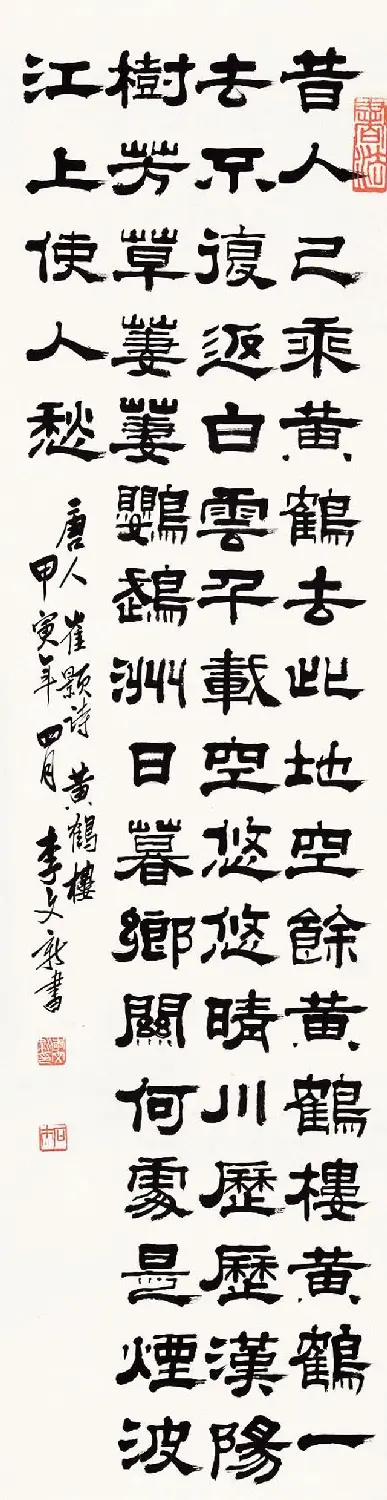 昔人已乘黄鶴去此地空餘黄鶴樓黄鶴一
去不復返白雲千載空悠悠晴川歷歷漢陽
樹芳草萋萋鸚鵡洲日暮鄉關何處是煙波
江上使人愁
唐人崔顥詩黄鶴樓
甲寅年四月李文新書